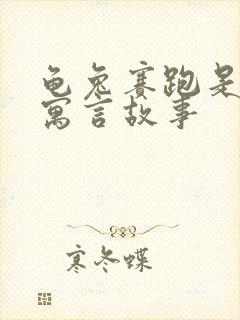 龟兔赛跑是
寓言故事
寒冬蝶